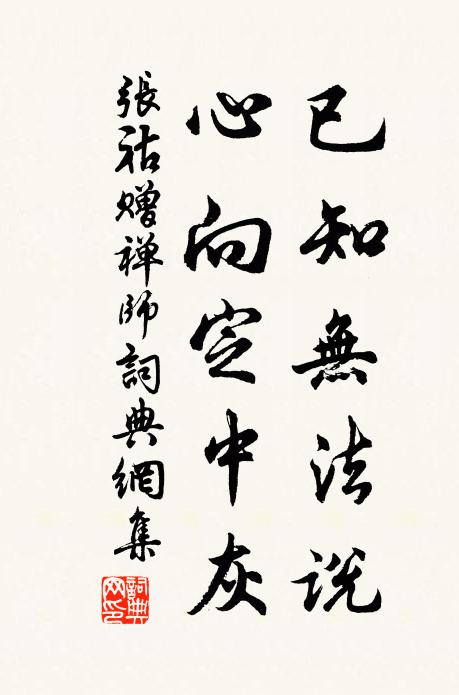 已知無法說
心向定中灰
張祜贈禅師詞典網集
詞典網印